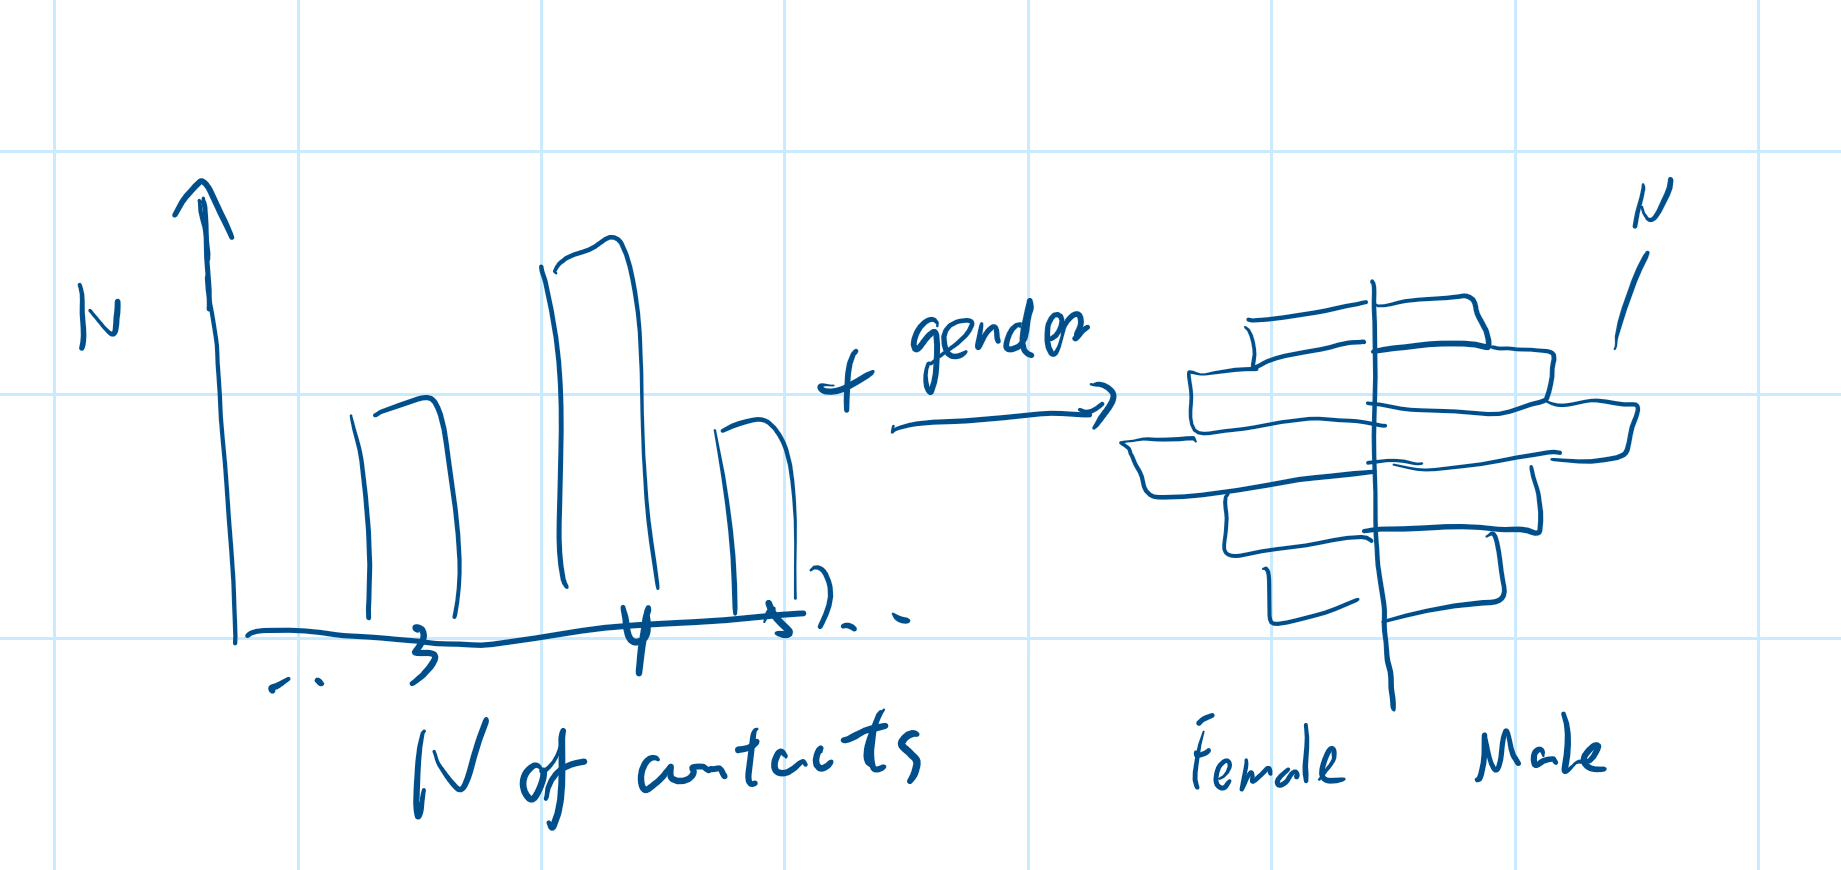 N
3 4 5
N of contacts
+ gender
N
Female Male